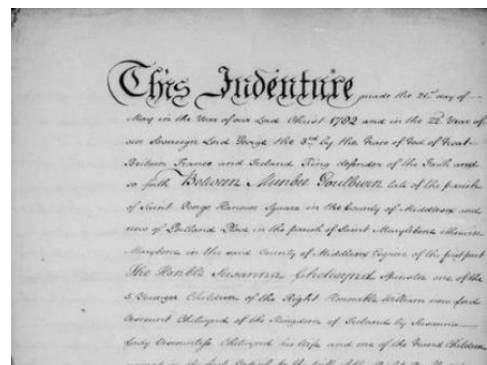 This Indenture made the 21st day of
May in the Year of our Lord Christ 1782 and in the 22 Year of
our Sovereign Lord George the 3rd by the Grace of God of Great
Britain France and Ireland King defender of the Faith and
so forth Between Munbee Goulburn late of the parish
of Saint George Hanover Square in the County of Middlesex and
now of Portland Place in the parish of Saint Marylebone otherwise
Marybone in the said County of Middlesex Esquire of the first part
The Honble Susanna Chetwynd Spinster one of the
5 Younger Children of the Right Honorable William now Lord
Viscount Chetwynd of the Kingdom of Ireland by Susanna
Lady Viscountess Chetwynd his Wife and one of the Children